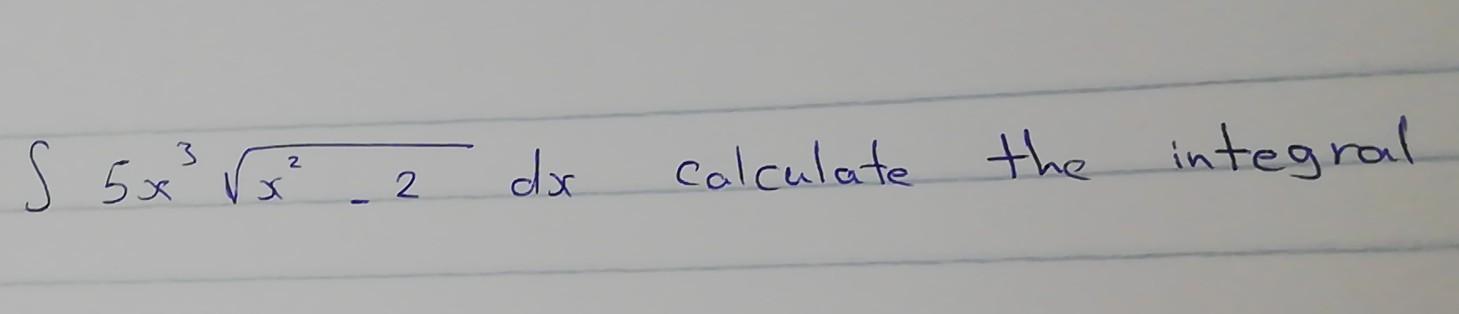 ∫ 5x³ √(x² - 2) dx calculate the integral